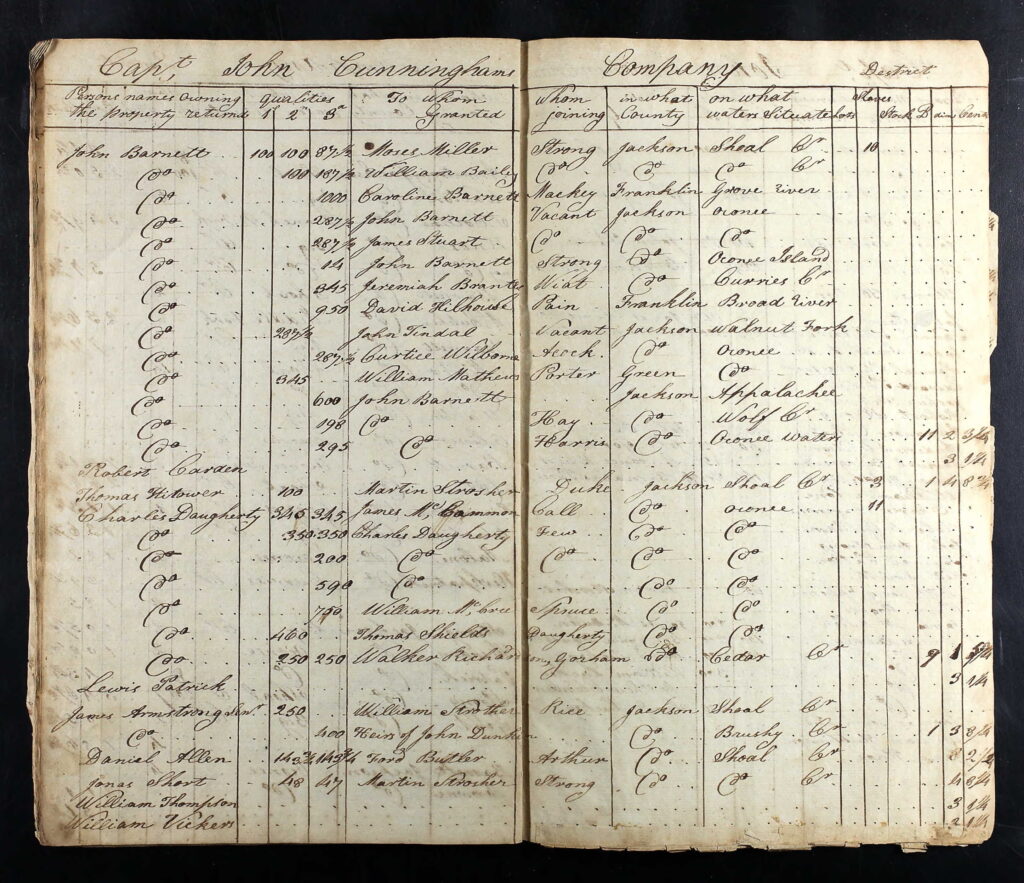 Capt. John Cunninghams Company District
Persons names owning the property returnd Qualities 1st 2d 3d To Whom Granted Whom joining in what County on what waters Situate Lots Slaves Stock D dim Cents
John Barnett 100 100 87½ Moses Miller Strong Jackson Shoal Cr 10
Do 100 187½ William Baily Do Do Do Cr
Do 1000 Caroline Barnett Mackey Franklin Grove River
Do 287½ John Barnett Vacant Jackson Oconee
Do 287½ James Stuart Do Do Do
Do 14 John Barnett Strong Do Oconee Island
Do 345 Jeremiah Brantes Wiat Do Curries Cr
Do 950 David Hilhouse Pain Franklin Broad River
Do 287½ John Tindal Vacant Jackson Walnut Fork
Do 287½ Curtice Wilborne Acock Do Oconee
Do 345 William Mathews Porter Green Do
Do 600 John Barnett Jackson Appalachee
Do 198 Do Hay Do Wolf Cr
Do 295 Do Harris Do Oconee Waters 11 2 3¼
Robert Carden 3 1¼
Thomas Hitower 100 Martin Strosher Duke Jackson Shoal Cr 3 1 4 8¾
Charles Daugherty 345 345 James McCammon Call Do Oconee 11
Do 350 350 Charles Daugherty Few Do Do
Do 200 Do Do Do Do
Do 590 Do Do Do
Do 750 William McCree Spruse Do Do
Do 460 Thomas Shields Daugherty Do Do
Do 250 250 Walker Richardson Gorham Do Cedar Cr 9 1
Lewis Patrick 3 1¼
James Armstrong Senr 250 William Strother Rice Jackson Shoal Cr
Do 400 Heirs of John Dunkin Do Brushy Cr 1 3 8¼
Daniel Allen 143¾ 143¾ Ford Butler Arthur Do Shoal Cr 8 2½
Jonas Short 48 47 Martin Strosher Strong Do Do Cr 4
William Thompson 3 1¼
William Vickers 2 1¼